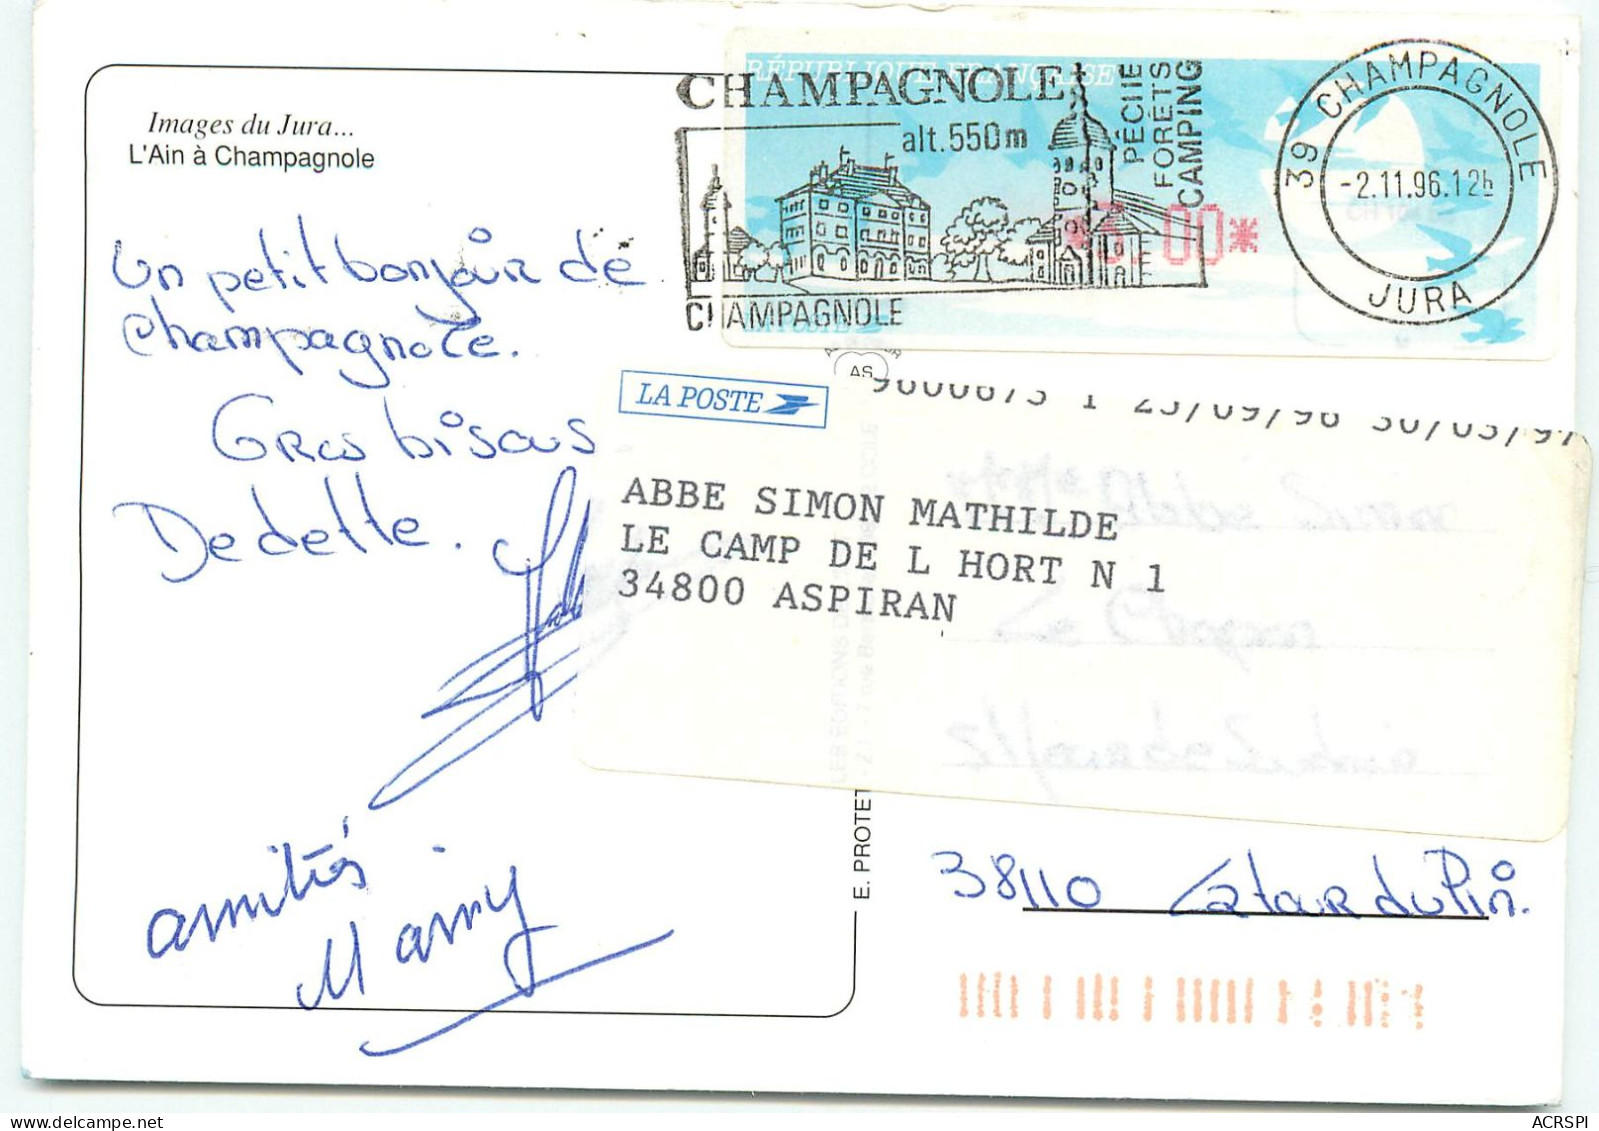 Images du Jura...
L'Ain à Champagnole
Un petit bonjour de
Champagnole.
Gros bisous
Dedette.
amitiés
Mamy
RÉPUBLIQUE FRANÇAISE
CHAMPAGNOLE
alt.550m
PÊCHE
FORÊTS
CAMPING
CHAMPAGNOLE
39 CHAMPAGNOLE
-2.11.96.12h
JURA
AS
LA POSTE
9600673 1 25/09/96 30/03/97
ABBE SIMON MATHILDE
LE CAMP DE L HORT N 1
34800 ASPIRAN
E. PROTET
38110 La tour du Pin.
ACRSPI